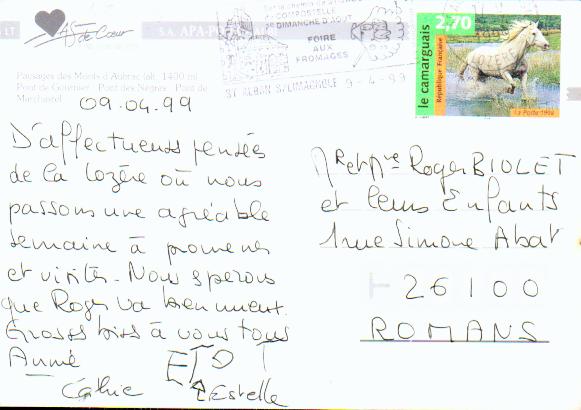 AS de Cœur
S.A. APA-PO
COMPOSTELLE
DIMANCHE D'AOUT
FOIRE
AUX
FROMAGES
ST ALBAN S/LIMAGNOLE 9-4-99
2,70
le camarguais
République Française
La Poste 1998
Paysages des Monts d'Aubrac (alt. 1400 m)
Pont de Gournier - Pont des Nègres - Pont de
Marchastel
09.04.99
D'affectueuses pensées
de la Lozère où nous
passons une agréable
semaine à promener
et visiter. Nous sperons
que Roger va bien mieux.
Grosses bises à vous tous
Annie
Cathie
Estelle
Mr et Mme Roger BIOLET
et leurs Enfants
1 rue Simone Abat
26100
ROMANS